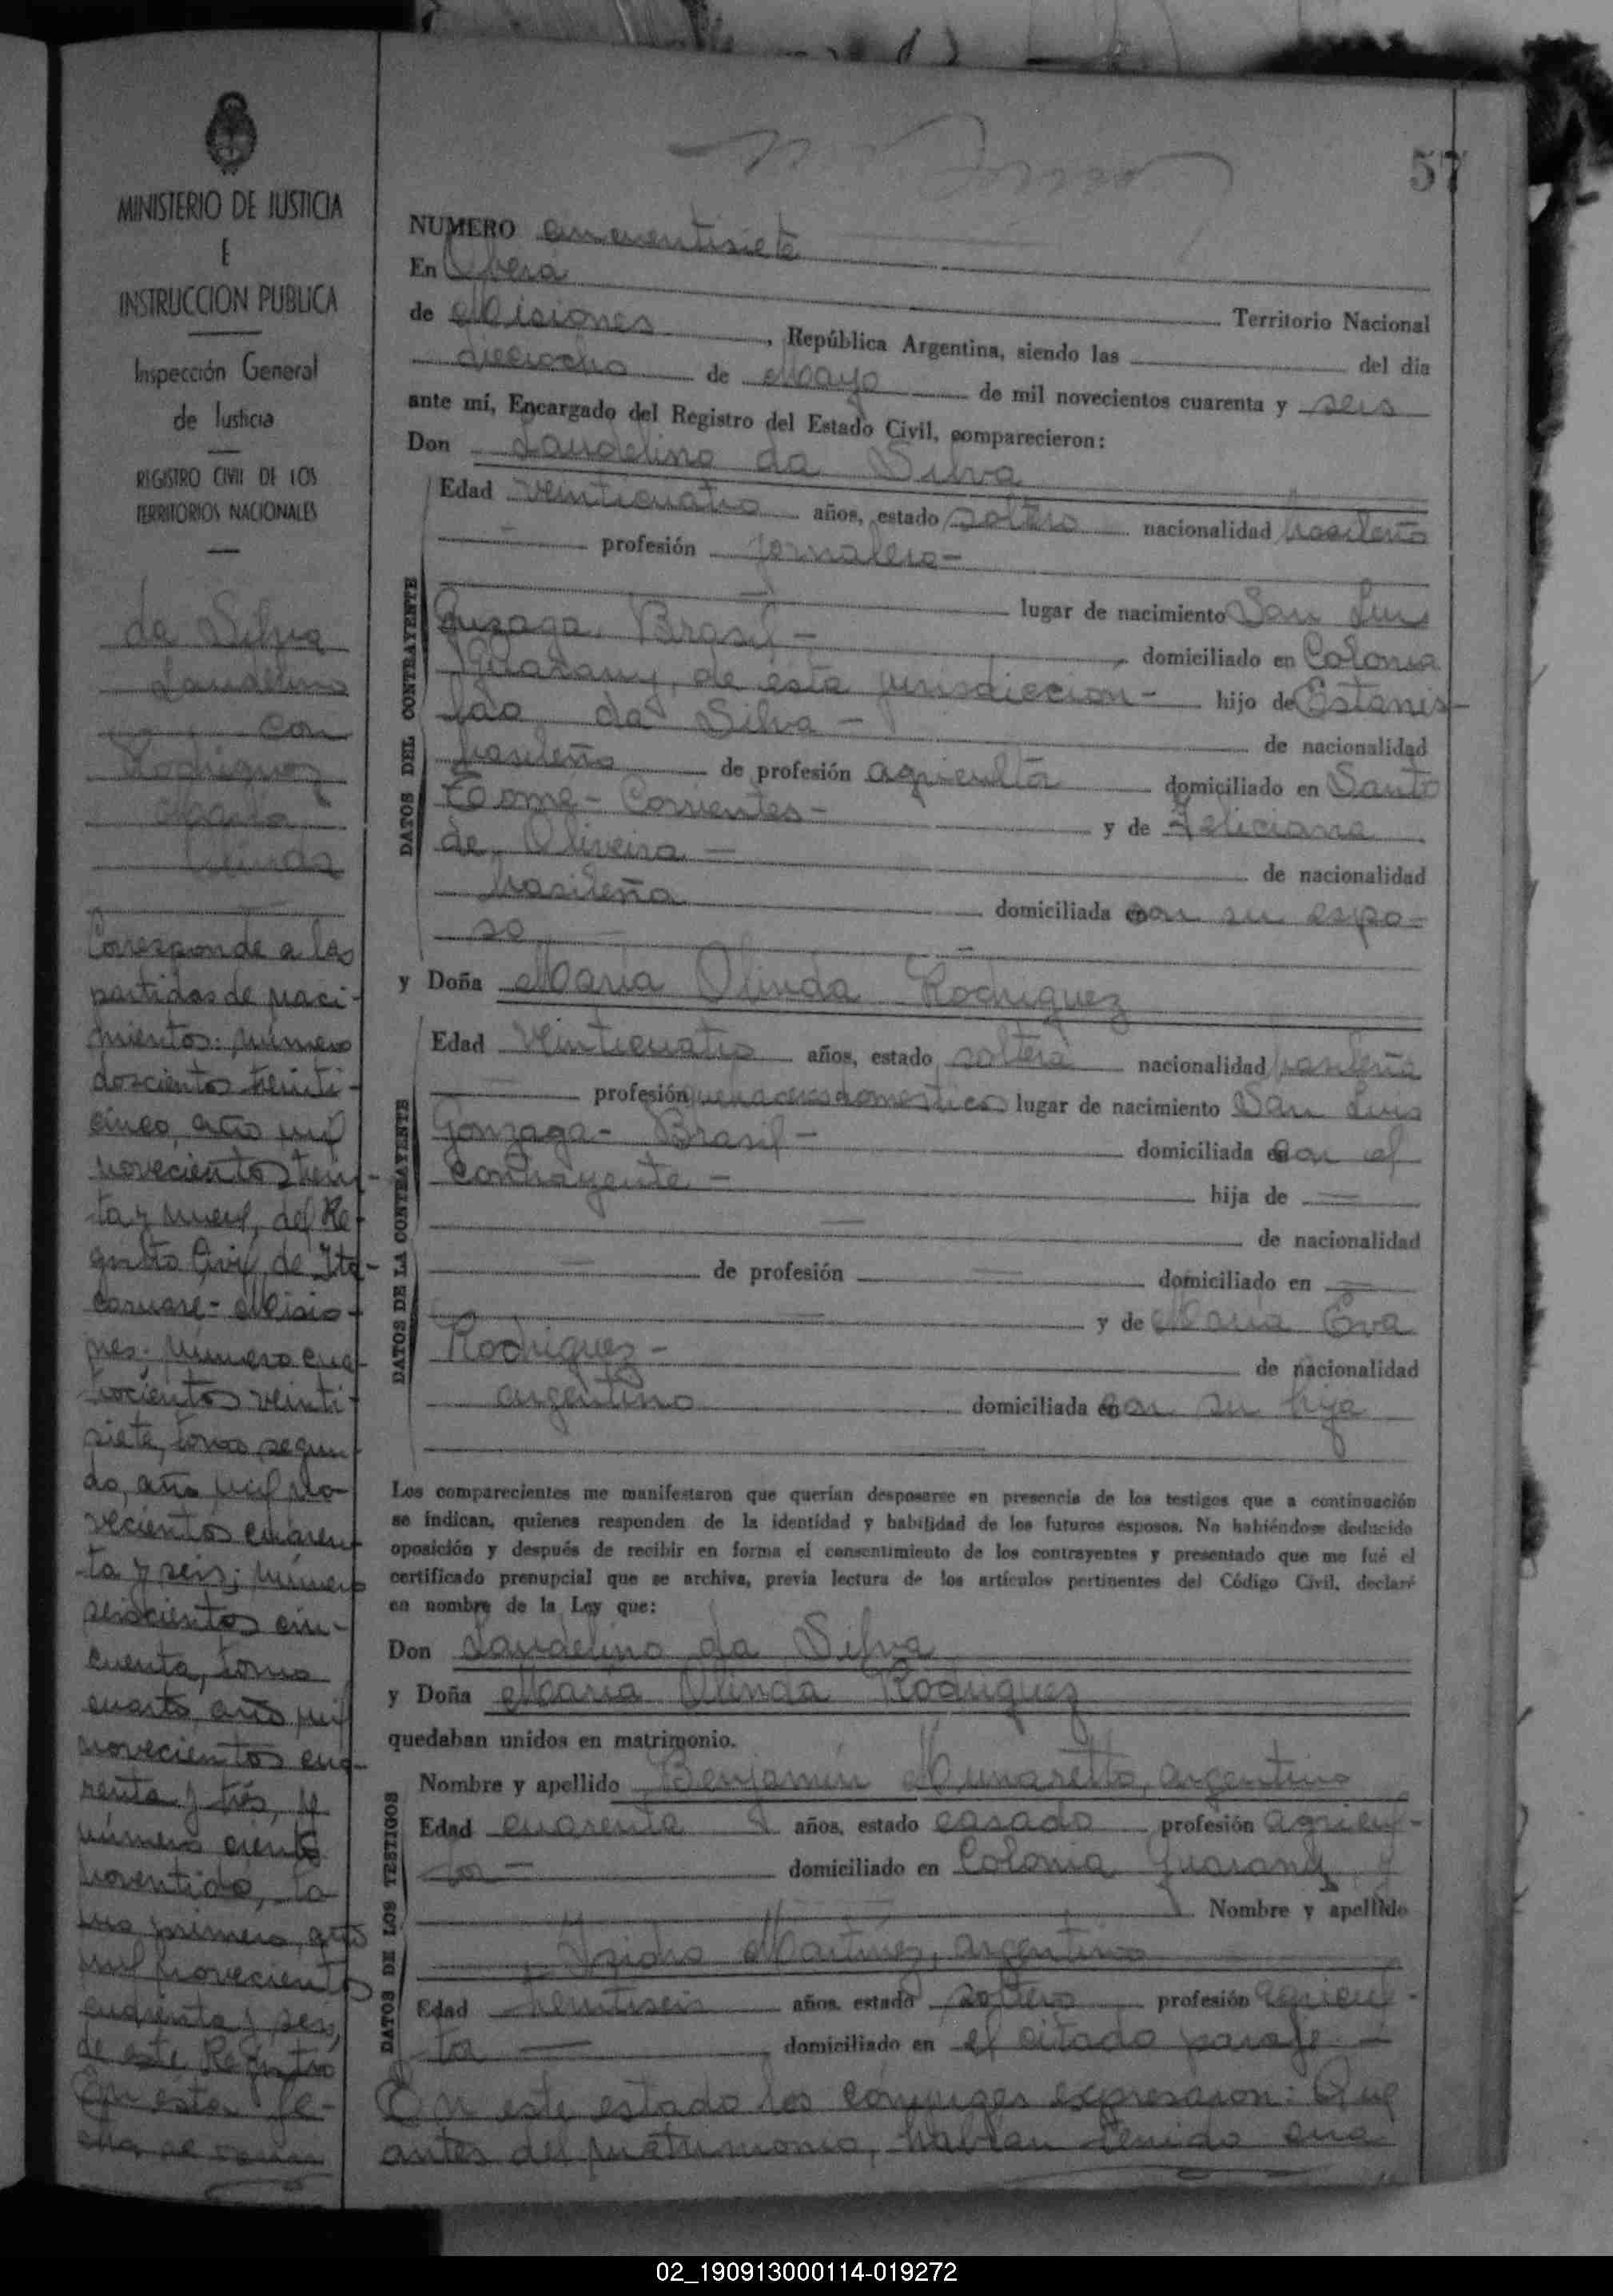 57
MINISTERIO DE JUSTICIA
E
INSTRUCCION PUBLICA
Inspección General
de Justicia
REGISTRO CIVIL DE LOS
TERRITORIOS NACIONALES
da Silva
Laudelino
con
Rodriguez
Maria
Olinda
Corresponde a las
partidas de naci-
mientos: número
doscientos treinti-
cinco, año mil
novecientos trein-
ta y nueve, del Re-
gistro Civil de Ita-
caruaré - Misio-
nes; número cua-
trocientos veinti-
siete, tomo segun-
do, año mil no-
vecientos cuaren-
ta y seis; número
seiscientos cin-
cuenta, tomo
cuarto, año mil
novecientos cua-
renta y trés, y
número ciento
noventidos, to
mo primero, año
mil novecientos
cuarenta y seis,
de este Registro
En esta fe-
cha se
NUMERO cincuentisiete
En Oberá
Territorio Nacional
de Misiones, República Argentina, siendo las del día
dieciocho de Mayo de mil novecientos cuarenta y seis
ante mí, Encargado del Registro del Estado Civil, comparecieron:
Don Laudelino da Silva
DATOS DEL CONTRAYENTE
Edad veinticuatro años, estado soltero nacionalidad brasileño
profesión jornalero-
lugar de nacimiento San Luis
Guzaga, Brasil - domiciliado en Colonia
Guarany, de ésta jurisdiccion - hijo de Estanis-
lao da Silva - de nacionalidad
brasileño de profesión agricultor domiciliado en Santo
Tomé - Corrientes - y de Feliciana
de Oliveira - de nacionalidad
brasileña domiciliada con su espo-
so
y Doña Maria Olinda Rodriguez
DATOS DE LA CONTRAYENTE
Edad veinticuatro años, estado soltera nacionalidad brasileña
profesión quehaceres domesticos lugar de nacimiento San Luis
Gonzaga - Brasil - domiciliada con el
contrayente - hija de
de nacionalidad
de profesión domiciliado en
y de Maria Eva
Rodriguez - de nacionalidad
argentino domiciliada con su hija
Los comparecientes me manifestaron que querían desposarse en presencia de los testigos que a continuación
se indican, quienes responden de la identidad y habilidad de los futuros esposos. No habiéndose deducido
oposición y después de recibir en forma el consentimiento de los contrayentes y presentado que me fué el
certificado prenupcial que se archiva, previa lectura de los artículos pertinentes del Código Civil, declaré
en nombre de la Ley que:
Don Laudelino da Silva
y Doña Maria Olinda Rodriguez
quedaban unidos en matrimonio.
DATOS DE LOS TESTIGOS
Nombre y apellido Benjamín Munaretto, argentino
Edad cuarenta años, estado casado profesión agricul-
tor - domiciliado en Colonia Guarany y
Nombre y apellido
Isidro Martinez, argentino
Edad treintiseis años, estado soltero profesión agricul-
tor domiciliado en el citado paraje -
En este estado los cónyuges expresaron: Que
antes del matrimonio, habían tenido cua
02_190913000114-019272